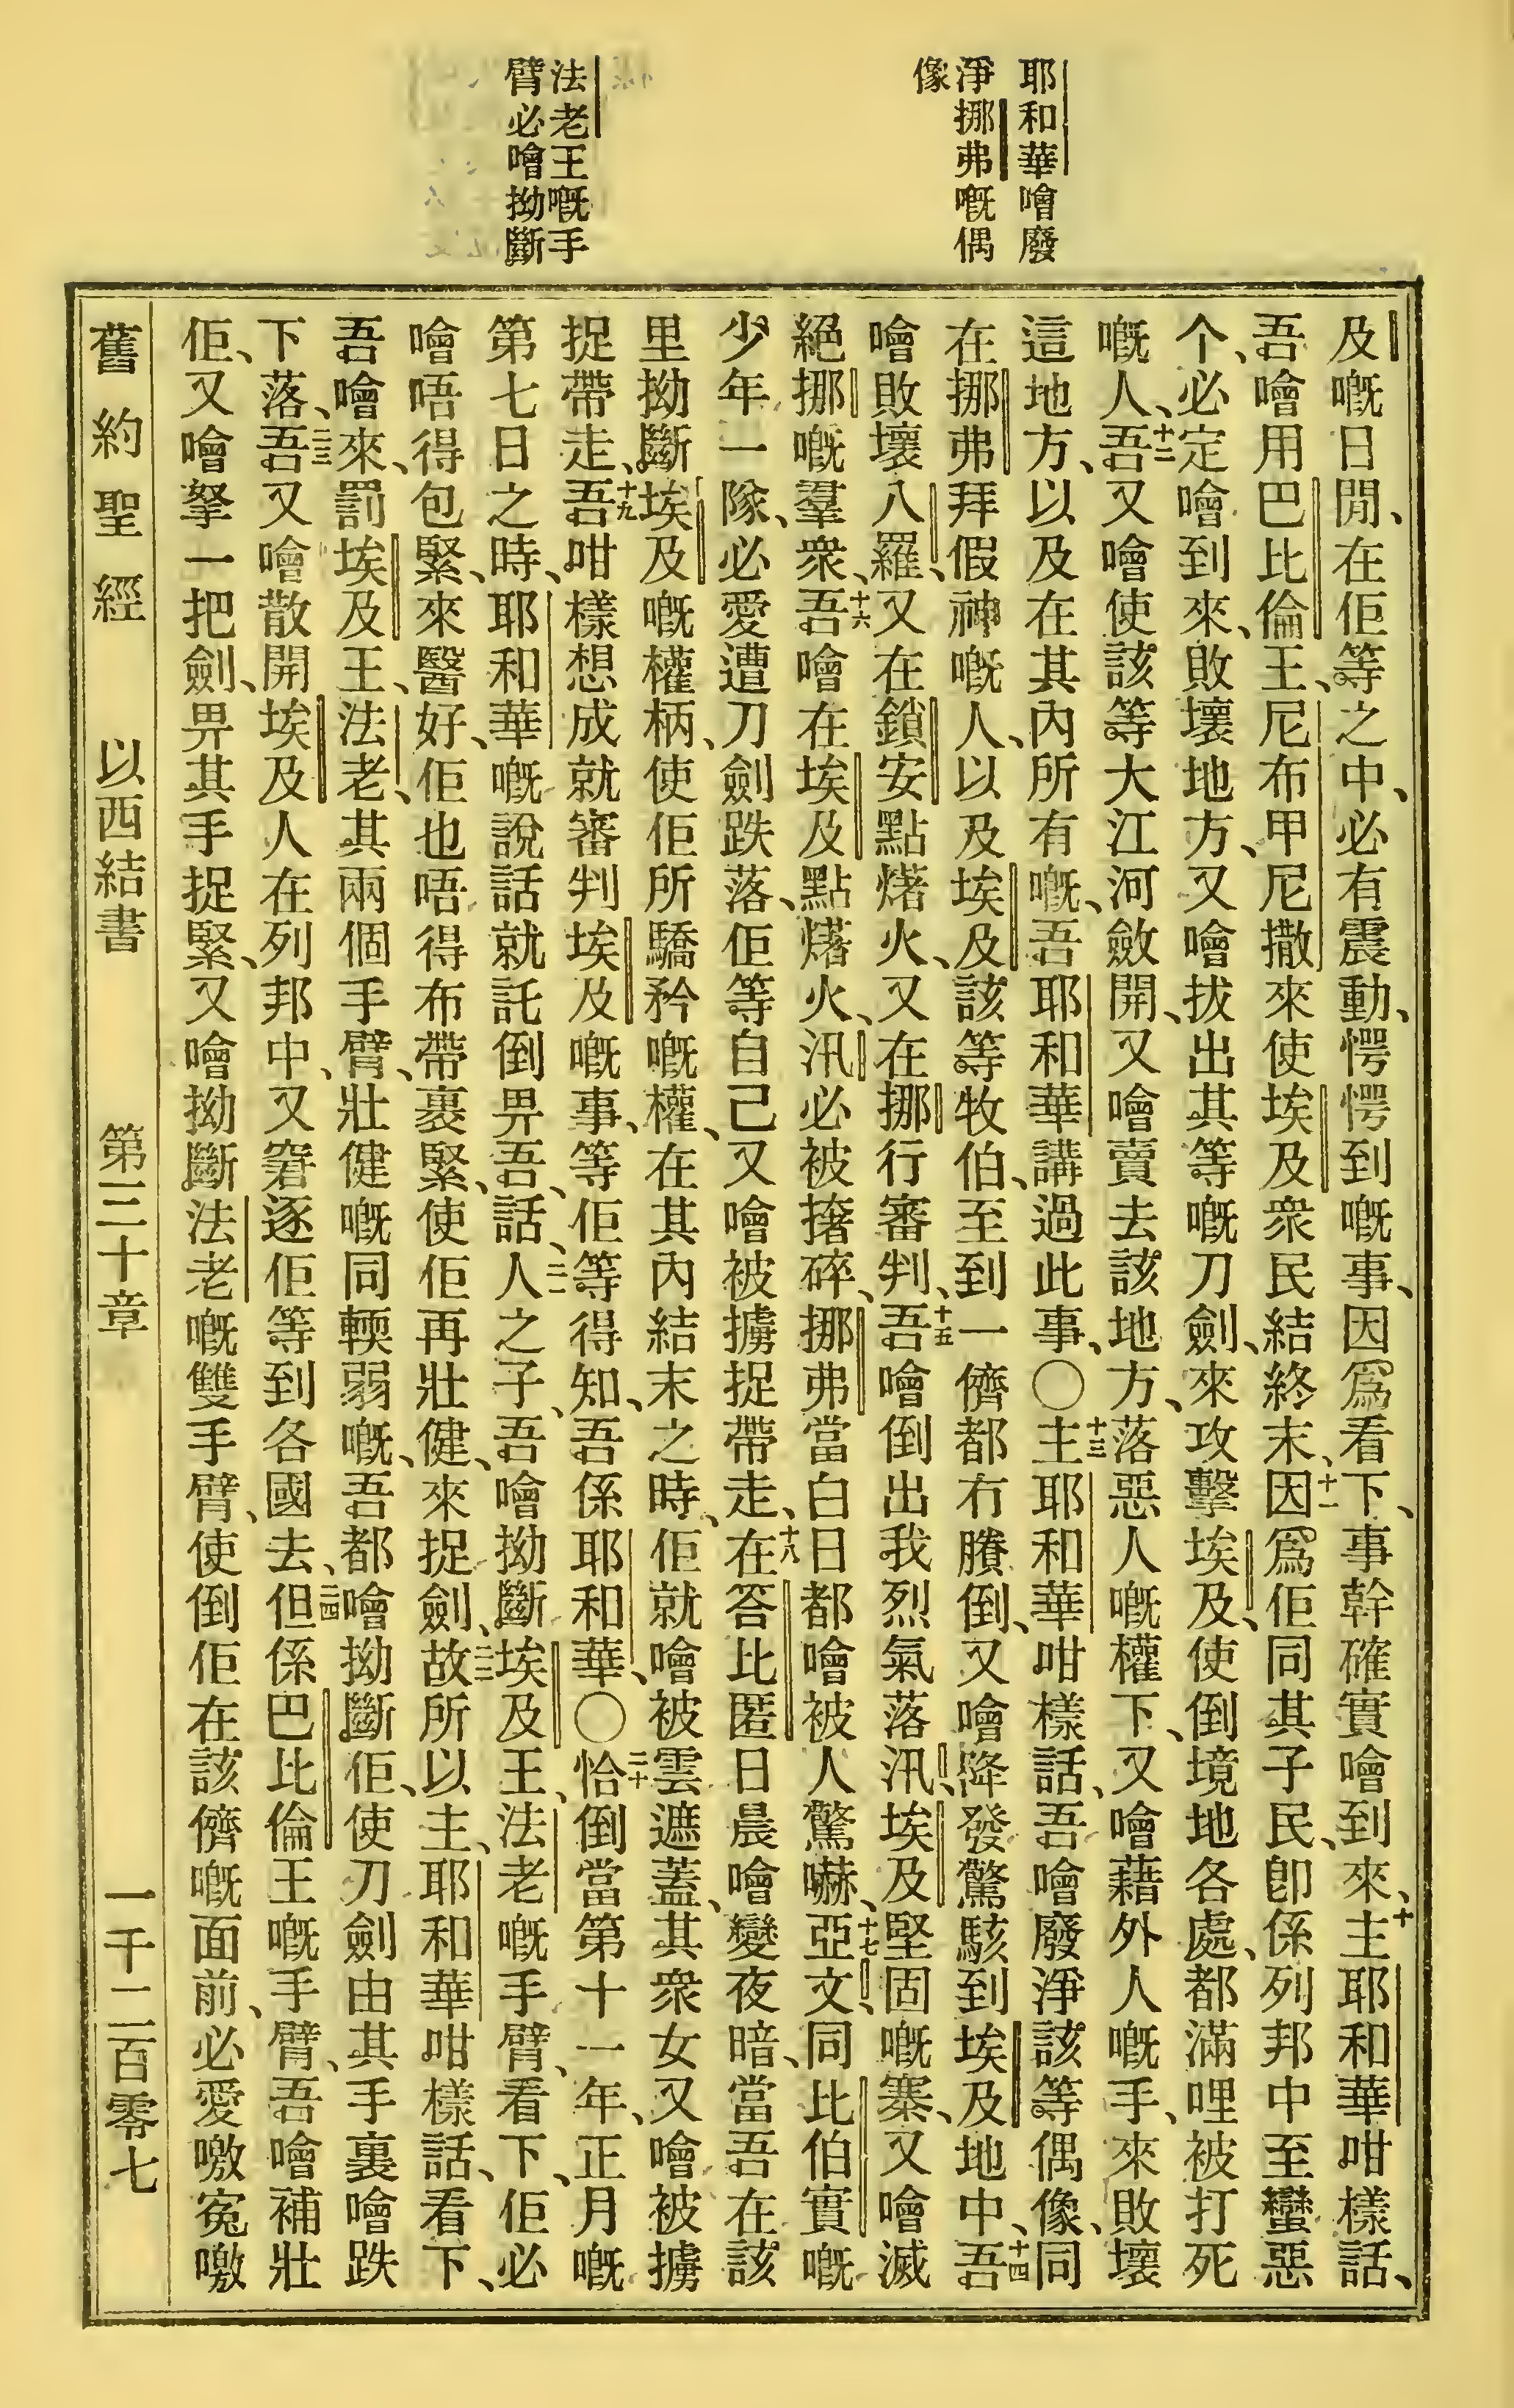 耶和華噲廢
淨挪弗嘅偶
像
法老王嘅手
臂必噲拗斷
及嘅日閒、在佢等之中、必有震動、愕愕到嘅事、因爲看下、事幹確實噲到來、十主耶和華咁樣話、
吾噲用巴比倫王、尼布甲尼撒來使埃及衆民結終末、十一因爲佢同其子民、卽係列邦中至蠻惡
个、必定噲到來、敗壞地方、又噲拔出其等嘅刀劍、來攻擊埃及、使倒境地各處、都滿哩被打死
嘅人、十二吾又噲使該等大江河斂開、又噲賣去該地方、落惡人嘅權下、又噲藉外人嘅手、來敗壞
這地方、以及在其內所有嘅、吾耶和華講過此事、〇十三主耶和華咁樣話、吾噲廢淨該等偶像、同
在挪弗拜假神嘅人、以及埃及該等牧伯、至到一儕都冇賸倒、又噲降發驚駭到埃及地中、十四吾
噲敗壞八羅、又在鎖安點㷮火、又在挪行審判、十五吾噲倒出我烈氣落汛、埃及堅固嘅寨、又噲滅
絕挪嘅羣衆、十六吾噲在埃及點㷮火、汛必被撦碎、挪弗當白日都噲被人驚嚇、十七亞文、同比伯實嘅
少年一隊、必愛遭刀劍跌落、佢等自己又噲被擄捉帶走、十八在答比匿日晨噲變夜暗、當吾在該
里拗斷埃及嘅權柄、使佢所驕矜嘅權、在其內結末之時、佢就噲被雲遮蓋、其衆女又噲被擄
捉帶走、十九吾咁樣想成就審判埃及嘅事、等佢等得知、吾係耶和華、〇二十恰倒當第十一年、正月嘅
第七日之時、耶和華嘅說話就託倒畀吾、話、二一人之子、吾噲拗斷埃及王、法老嘅手臂、看下、佢必
噲唔得包緊、來醫好、佢也唔得布帶裹緊、使佢再壯健、來捉劍、二二故所以主、耶和華咁樣話、看下、
吾噲來、罰埃及王、法老、其兩個手臂、壯健嘅同輭弱嘅、吾都噲拗斷佢、使刀劍由其手裏噲跌
下落、二三吾又噲散開埃及人在列邦中、又窘逐佢等到各國去、二四但係巴比倫王嘅手臂、吾噲補壯
佢、又噲拏一把劍、畀其手捉緊、又噲拗斷法老嘅雙手臂、使倒佢在該儕嘅面前、必愛噭寃噭
舊約聖經　以西結書　第三十章　一千二百零七